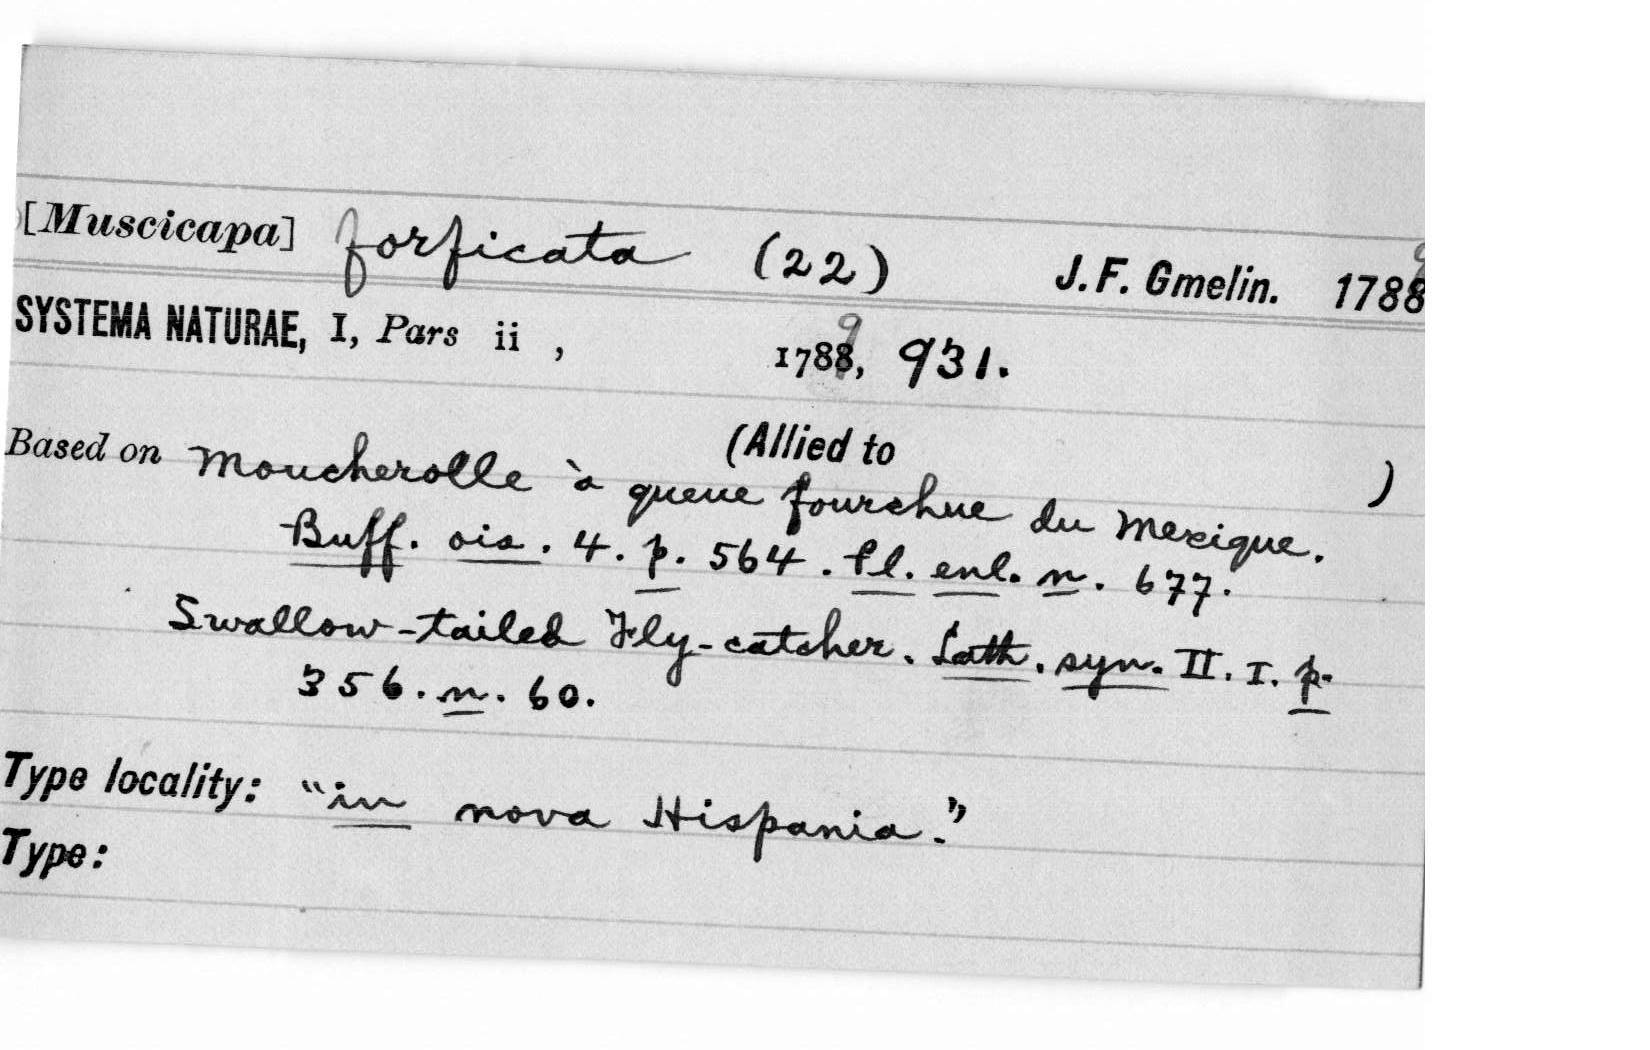 [Muscicapa] forficata (22) J. F. Gmelin. 1788 9
SYSTEMA NATURAE, I, Pars ii , 1788 9, 931.
(Allied to )
Based on Moucherolle à queue fourchue du Mexique.
Buff. ois. 4. p. 564. Pl. enl. n. 677.
Swallow-tailed Fly-catcher. Lath. syn. II. I. p.
356. n. 60.
Type locality: "in nova Hispania."
Type: